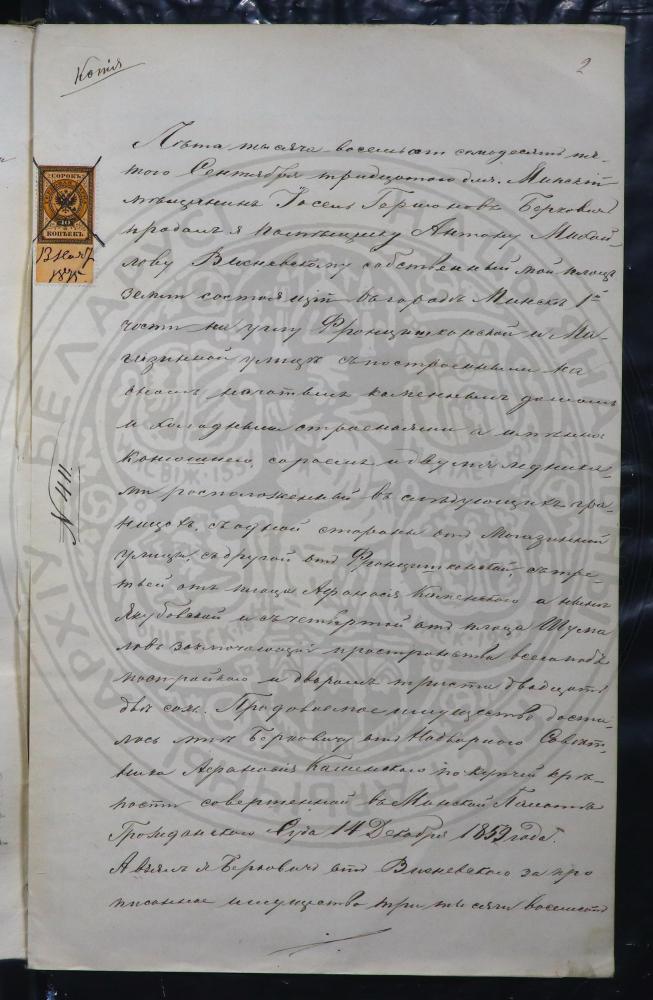 Копія
2
Лѣта тысяча восемьсотъ семьдесятъ пя-
таго Сентября тридцатаго дня. Минскій
мѣщанинъ Іосель Гершоновъ Берковичъ
продалъ я помѣщику Антону Михай-
лову Висневскому собственный мой плацъ
земли состоящій въ городѣ Минскѣ 1й
части на углу Францишканской и Ма-
газинной улицъ съ построеннымъ на
ономъ начатымъ каменнымъ домомъ
и холодными строеніями а именно
конюшнею, сараемъ и двумя ледника-
ми расположенный въ слѣдующихъ гра-
ницахъ, съ одной стороны отъ Магазинной
улицы, съ другой отъ Францишканской, съ тре-
тьей отъ плаца Афанасія Каменского а нынѣ
Якубовской и съ четвертой отъ плаца
заключающій пространства всего подъ
постройкою и дворомъ триста двадцать
двѣ саж. Продаваемое имущество доста-
лось мнѣ Берковичу отъ Надворнаго Совѣт-
ника Афанасія Каменского по купчей крѣ-
пости совершенной въ Минской Палатѣ
Гражданского Суда 14 Декабря 1859 года.
А взялъ я Берковичъ отъ Висневского за про
писанное имущество три тысячи восемьсотъ
СОРОКЪ
40
КОПѢЕКЪ
13
1875
N 411.